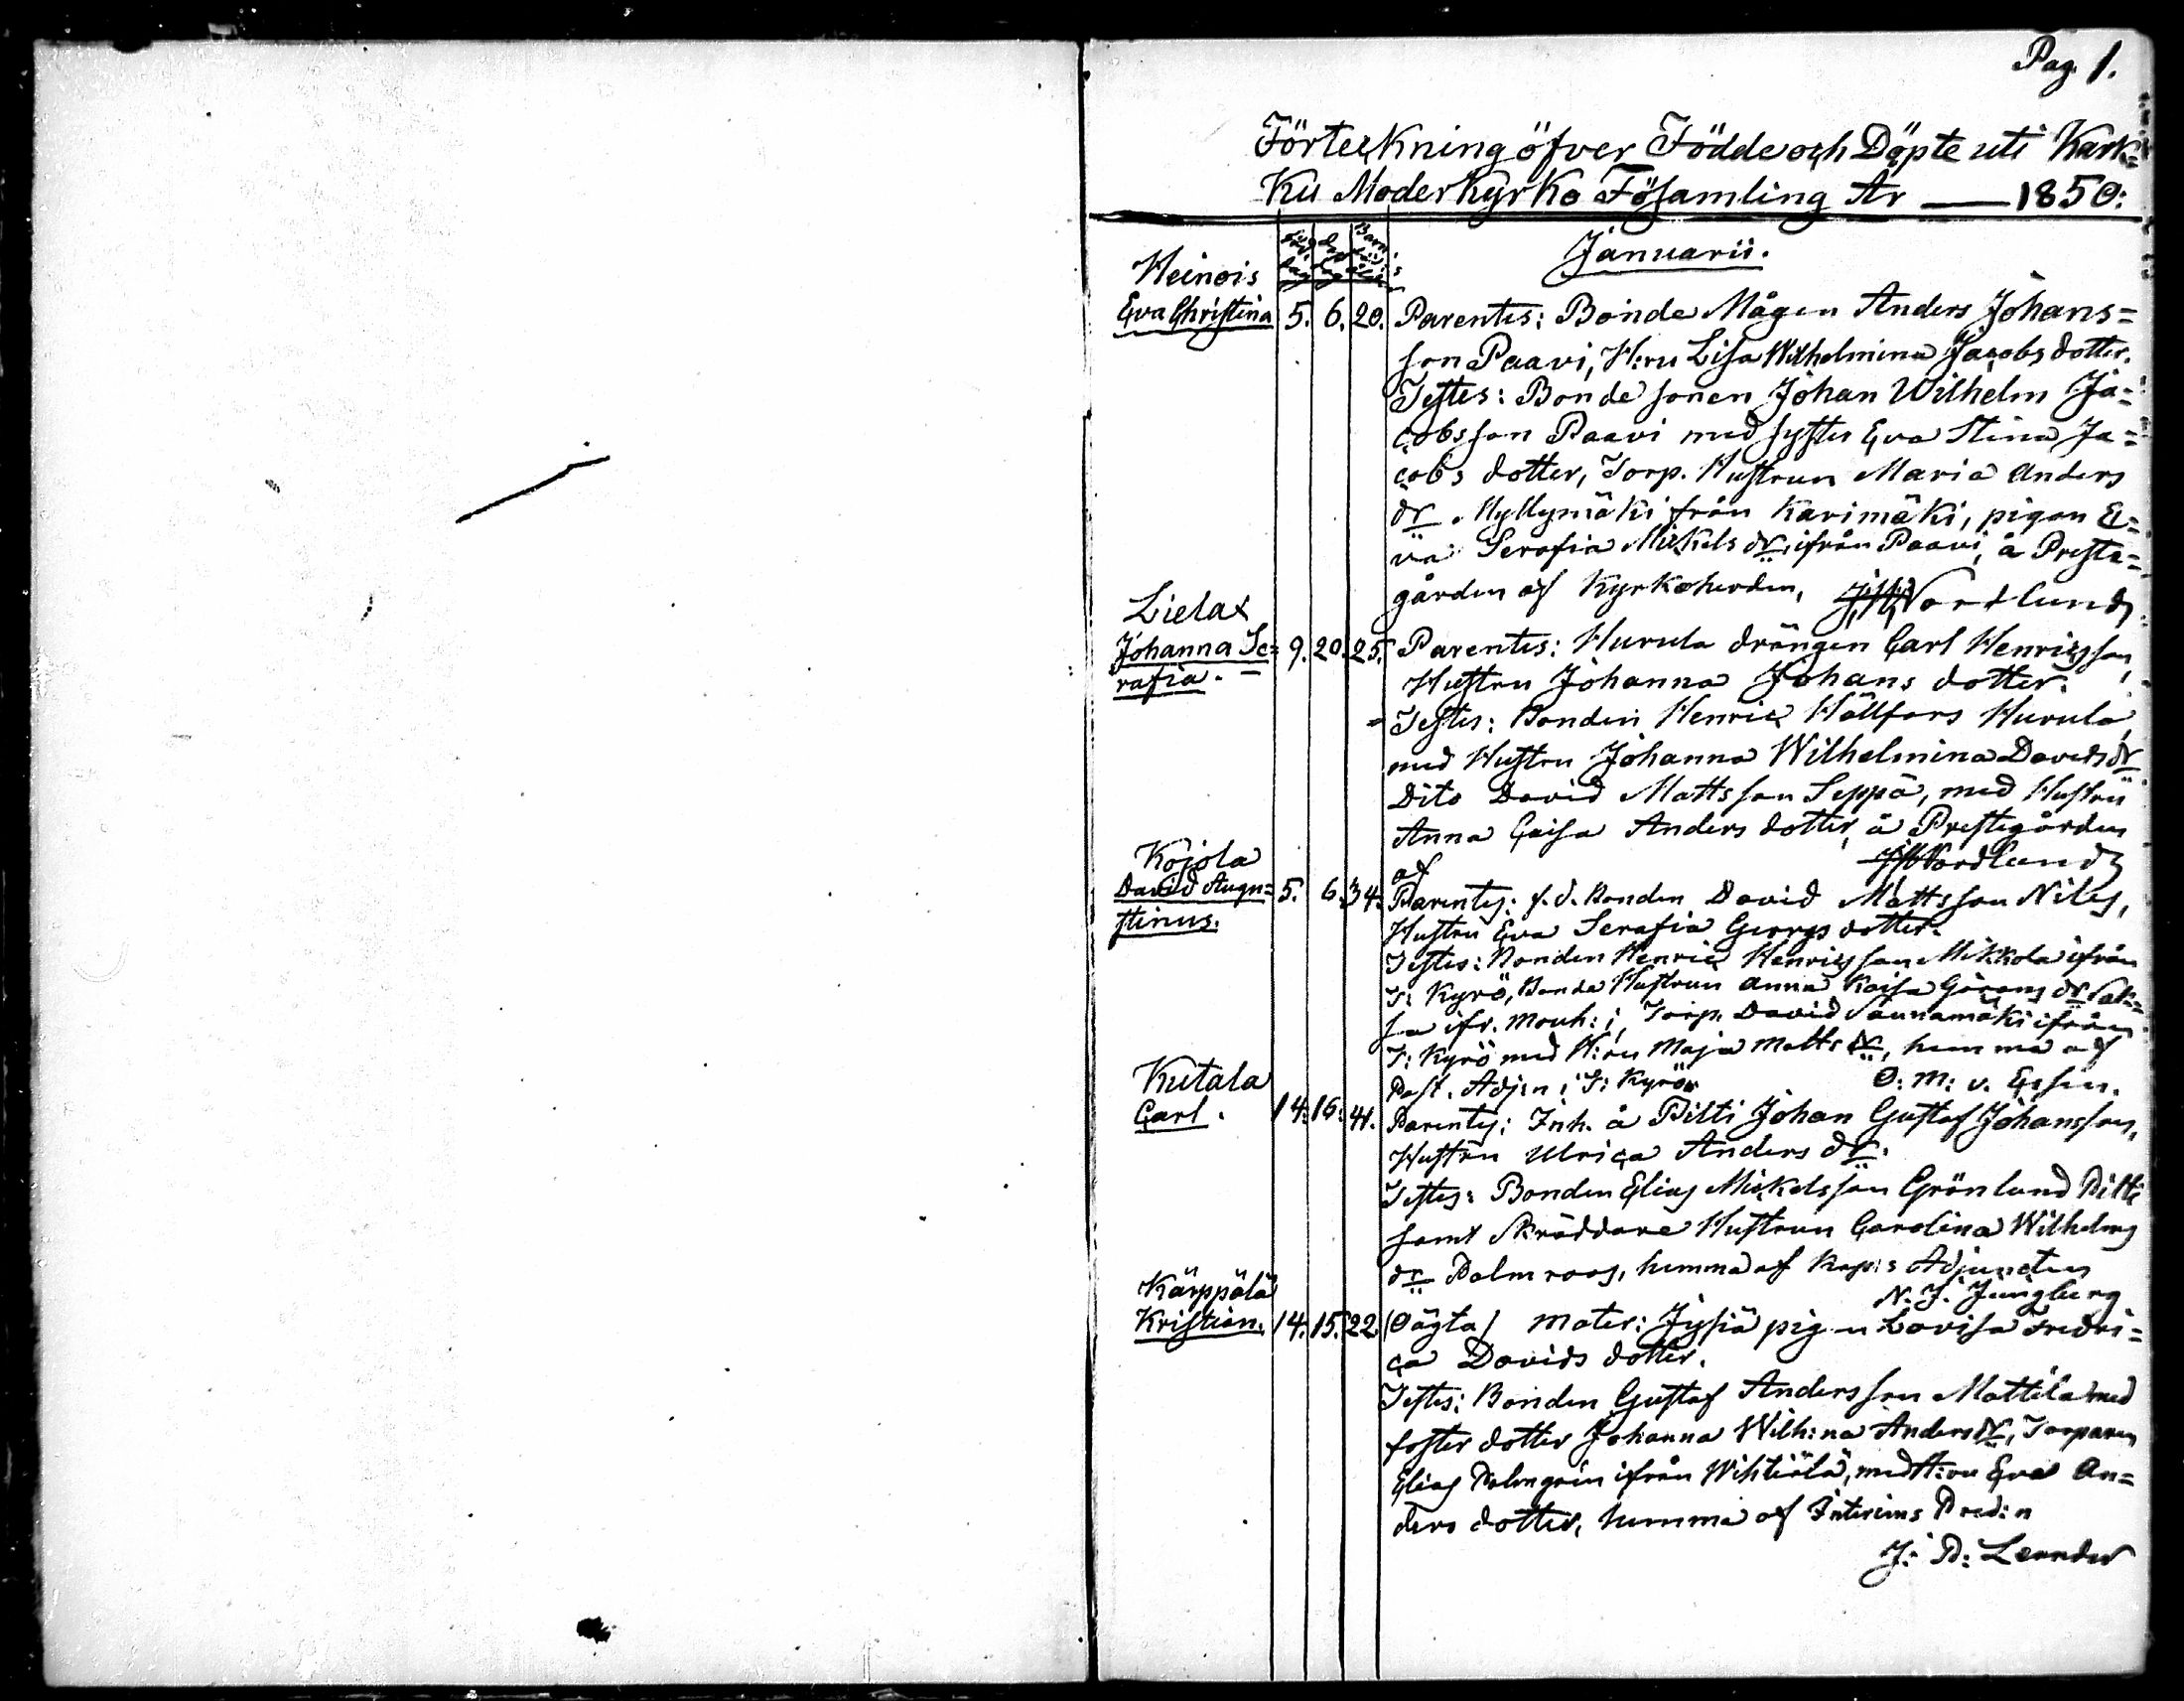 Pag. 1.
Förteckning öfver Födde och Döpte uti Kark=
ku Moderkyrko Fösamling År — 1850:
Januarii.
Heinois
Eva Christina 5. 6. 20. Parentes: Bonde Mågen Anders Johans=
son Paavi, H:ru Lisa Wilhelmina Jacobs dotter.
Testes: Bonde sonen Johan Wilhelm Ja=
cobsson Paavi med syster Eva Stina Ja=
cobs dotter, Torp. Hustrun Maria Anders
dr. Myllymäki från Karimäki, pigan E=
va Serafia Mickels dr. ifrån Paavi, å Preste=
gården af Kyrkoherden, Nordlund
Lielax
Johanna Se= 9. 20. 25. Parentes: Hurula drängen Carl Henricsson,
rafia. Hustru Johanna Johans dotter.
Testes: Bonden Henric Hällfors Hurula
med Hustru Johanna Wilhelmina Davids dr
Dito David Mattsson Seppä, med Hustru
Anna Caisa Anders dotter, å Prestegården
af Nordlund
Kojola
David Augu= 5. 6. 34. Parentes: f.d. Bonden David Mattsson Niles,
stinus. Hustru Eva Serafia Georgs dotter.
Testes: Bonden Henric Henricsson Mikkola ifrån
T: Kyrö, Bonde Hustrun Anna Kaisa Görans dr
sa ifr. Mouh: Torp. David Saunamäki ifrån
T: Kyrö med H:ru Maja Matts dr, hemma af
Past. Adj:n i T: Kyrö O: M: v. Essen.
Kutala
Carl. 14. 16. 41. Parentes: Inh. å Pitti Johan Gustaf Johansson,
Hustru Ulrica Anders dr.
Testes: Bonden Elias Mickelsson Grönlund Pitti
samt Skräddare Hustrun Carolina Wilhelms
dr Palmroos, hemma af Kap:s Adjuncten
N. J. Jungberg
Kärppälä
Kristian. 14. 15. 22. (Oägta) Mater: Jysiä pigan Lovisa Fredri=
ca Davids dotter.
Testes: Bonden Gustaf Andersson Mattila med
foster dotter Johanna Wilh:na Anders dr, Torparen
Elias Palmgrén ifrån Wihtiälä, med H:ru Eva An=
ders dotter, hemma af Interims Pred:n
J: P: Leander